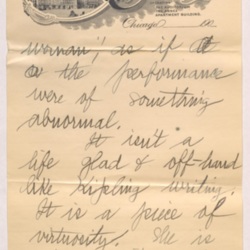 APARTMENT BUILDING.
Chicago 190
woman", as if it
the performance
were of something
abnormal.
It isn't a
life glad & off-hand
like Kipling writing.
It is a piece of
virtuosity. He is